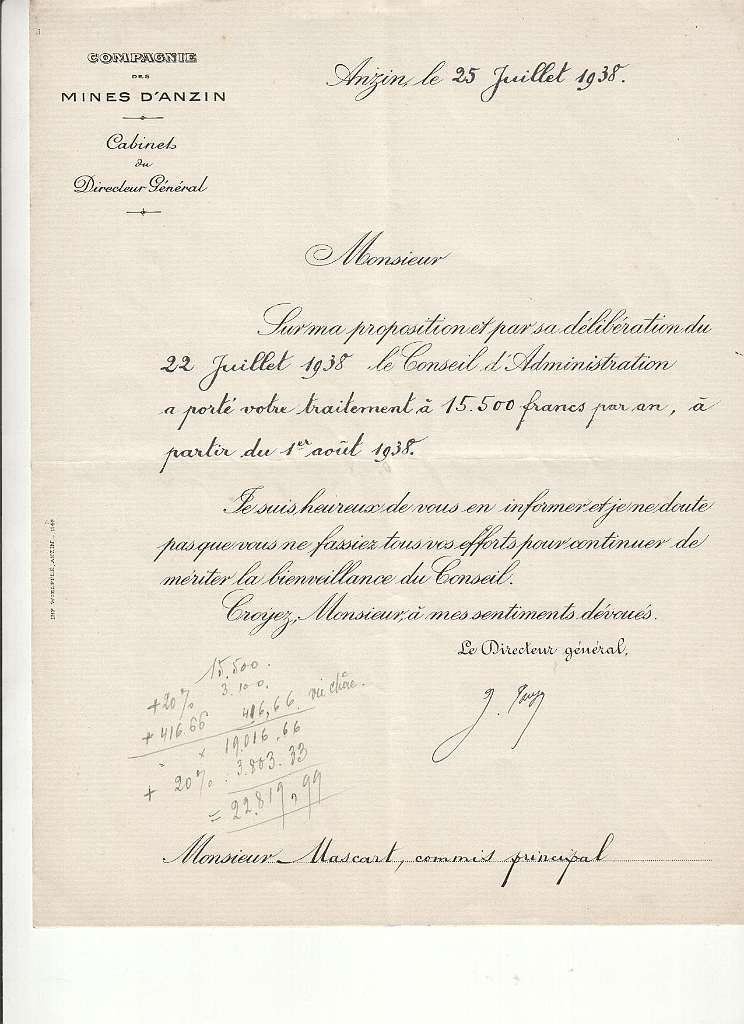 COMPAGNIE
DES
MINES D'ANZIN
Cabinet
du
Directeur Général
Anzin, le 25 Juillet 1938.
Monsieur
Sur ma proposition et par sa délibération du
22 Juillet 1938 le Conseil d'Administration
a porté votre traitement à 15.500 francs par an, à
partir du 1er août 1938.
Je suis heureux de vous en informer et je ne doute
pas que vous ne fassiez tous vos efforts pour continuer de
mériter la bienveillance du Conseil.
Croyez, Monsieur, à mes sentiments dévoués.
Le Directeur général,
15.500.
+20% 3.100.
+ 416.66 416,66. vie chère.
x 19.016,66
+ 20% : 3.803.33
= 22.819,99
Monsieur Mascart, commis principal
IMP. ANZIN.